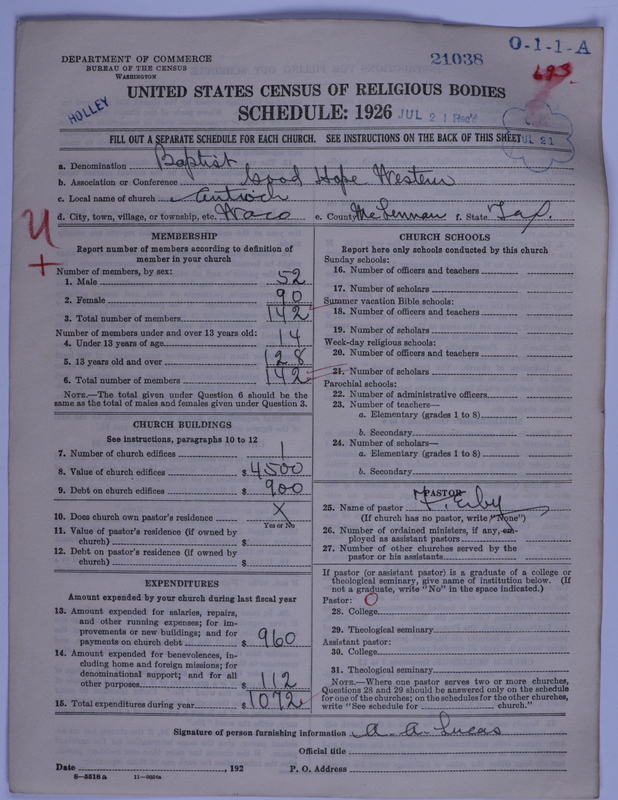 DEPARTMENT OF COMMERCE
BUREAU OF THE CENSUS
WASHINGTON
21038
O-1-1-A
693
HOLLEY
UNITED STATES CENSUS OF RELIGIOUS BODIES
SCHEDULE: 1926
JUL 21 Rec'd
JUL 21
FILL OUT A SEPARATE SCHEDULE FOR EACH CHURCH. SEE INSTRUCTIONS ON THE BACK OF THIS SHEET
a. Denomination Baptist
b. Association or Conference Good Hope Western
c. Local name of church Antioch
d. City, town, village, or township, etc. Waco e. County McLennan f. State
MEMBERSHIP
Report number of members according to definition of
member in your church
Number of members, by sex:
1. Male 52
2. Female 90
3. Total number of members 142
Number of members under and over 13 years old:
4. Under 13 years of age 14
5. 13 years old and over 128
6. Total number of members 142
NOTE.—The total given under Question 6 should be
same as the total of males and females given under Question 3.
CHURCH BUILDINGS
See instructions, paragraphs 10 to 12
7. Number of church edifices 1
8. Value of church edifices $ 4500
9. Debt on church edifices $ 900
10. Does church own pastor's residence X
Yes or No
11. Value of pastor's residence (if owned by
church) $
12. Debt on pastor's residence (if owned by
church) $
EXPENDITURES
Amount expended by your church during last fiscal year
13. Amount expended for salaries, repairs,
and other running expenses; for im-
provements or new buildings; and for
payments on church debt $ 960
14. Amount expended for benevolences, in-
cluding home and foreign missions; for
denominational support; and for all
other purposes $ 112
15. Total expenditures during year $ 1072
CHURCH SCHOOLS
Report here only schools conducted by this church
Sunday schools:
16. Number of officers and teachers
17. Number of scholars
Summer vacation Bible schools:
18. Number of officers and teachers
19. Number of scholars
Week-day religious schools:
20. Number of officers and teachers
21. Number of scholars
Parochial schools:
22. Number of administrative officers
23. Number of teachers—
a. Elementary (grades 1 to 8)
b. Secondary
24. Number of scholars—
a. Elementary (grades 1 to 8)
b. Secondary
PASTOR
25. Name of pastor F. Erby
(If church has no pastor, write "None")
26. Number of ordained ministers, if any, em-
ployed as assistant pastors
27. Number of other churches served by the
pastor or his assistants
If pastor (or assistant pastor) is a graduate of a college or
theological seminary, give name of institution below. (If
not a graduate, write "No" in the space indicated.)
Pastor: O
28. College
29. Theological seminary
Assistant pastor:
30. College
31. Theological seminary
NOTE.—Where one pastor serves two or more churches,
Questions 28 and 29 should be answered only on the schedule
for one of the churches; on the schedules for the other churches,
write "See schedule for church."
Signature of person furnishing information A. A. Lucas
Official title
Date , 192 P. O. Address
8—5518 a